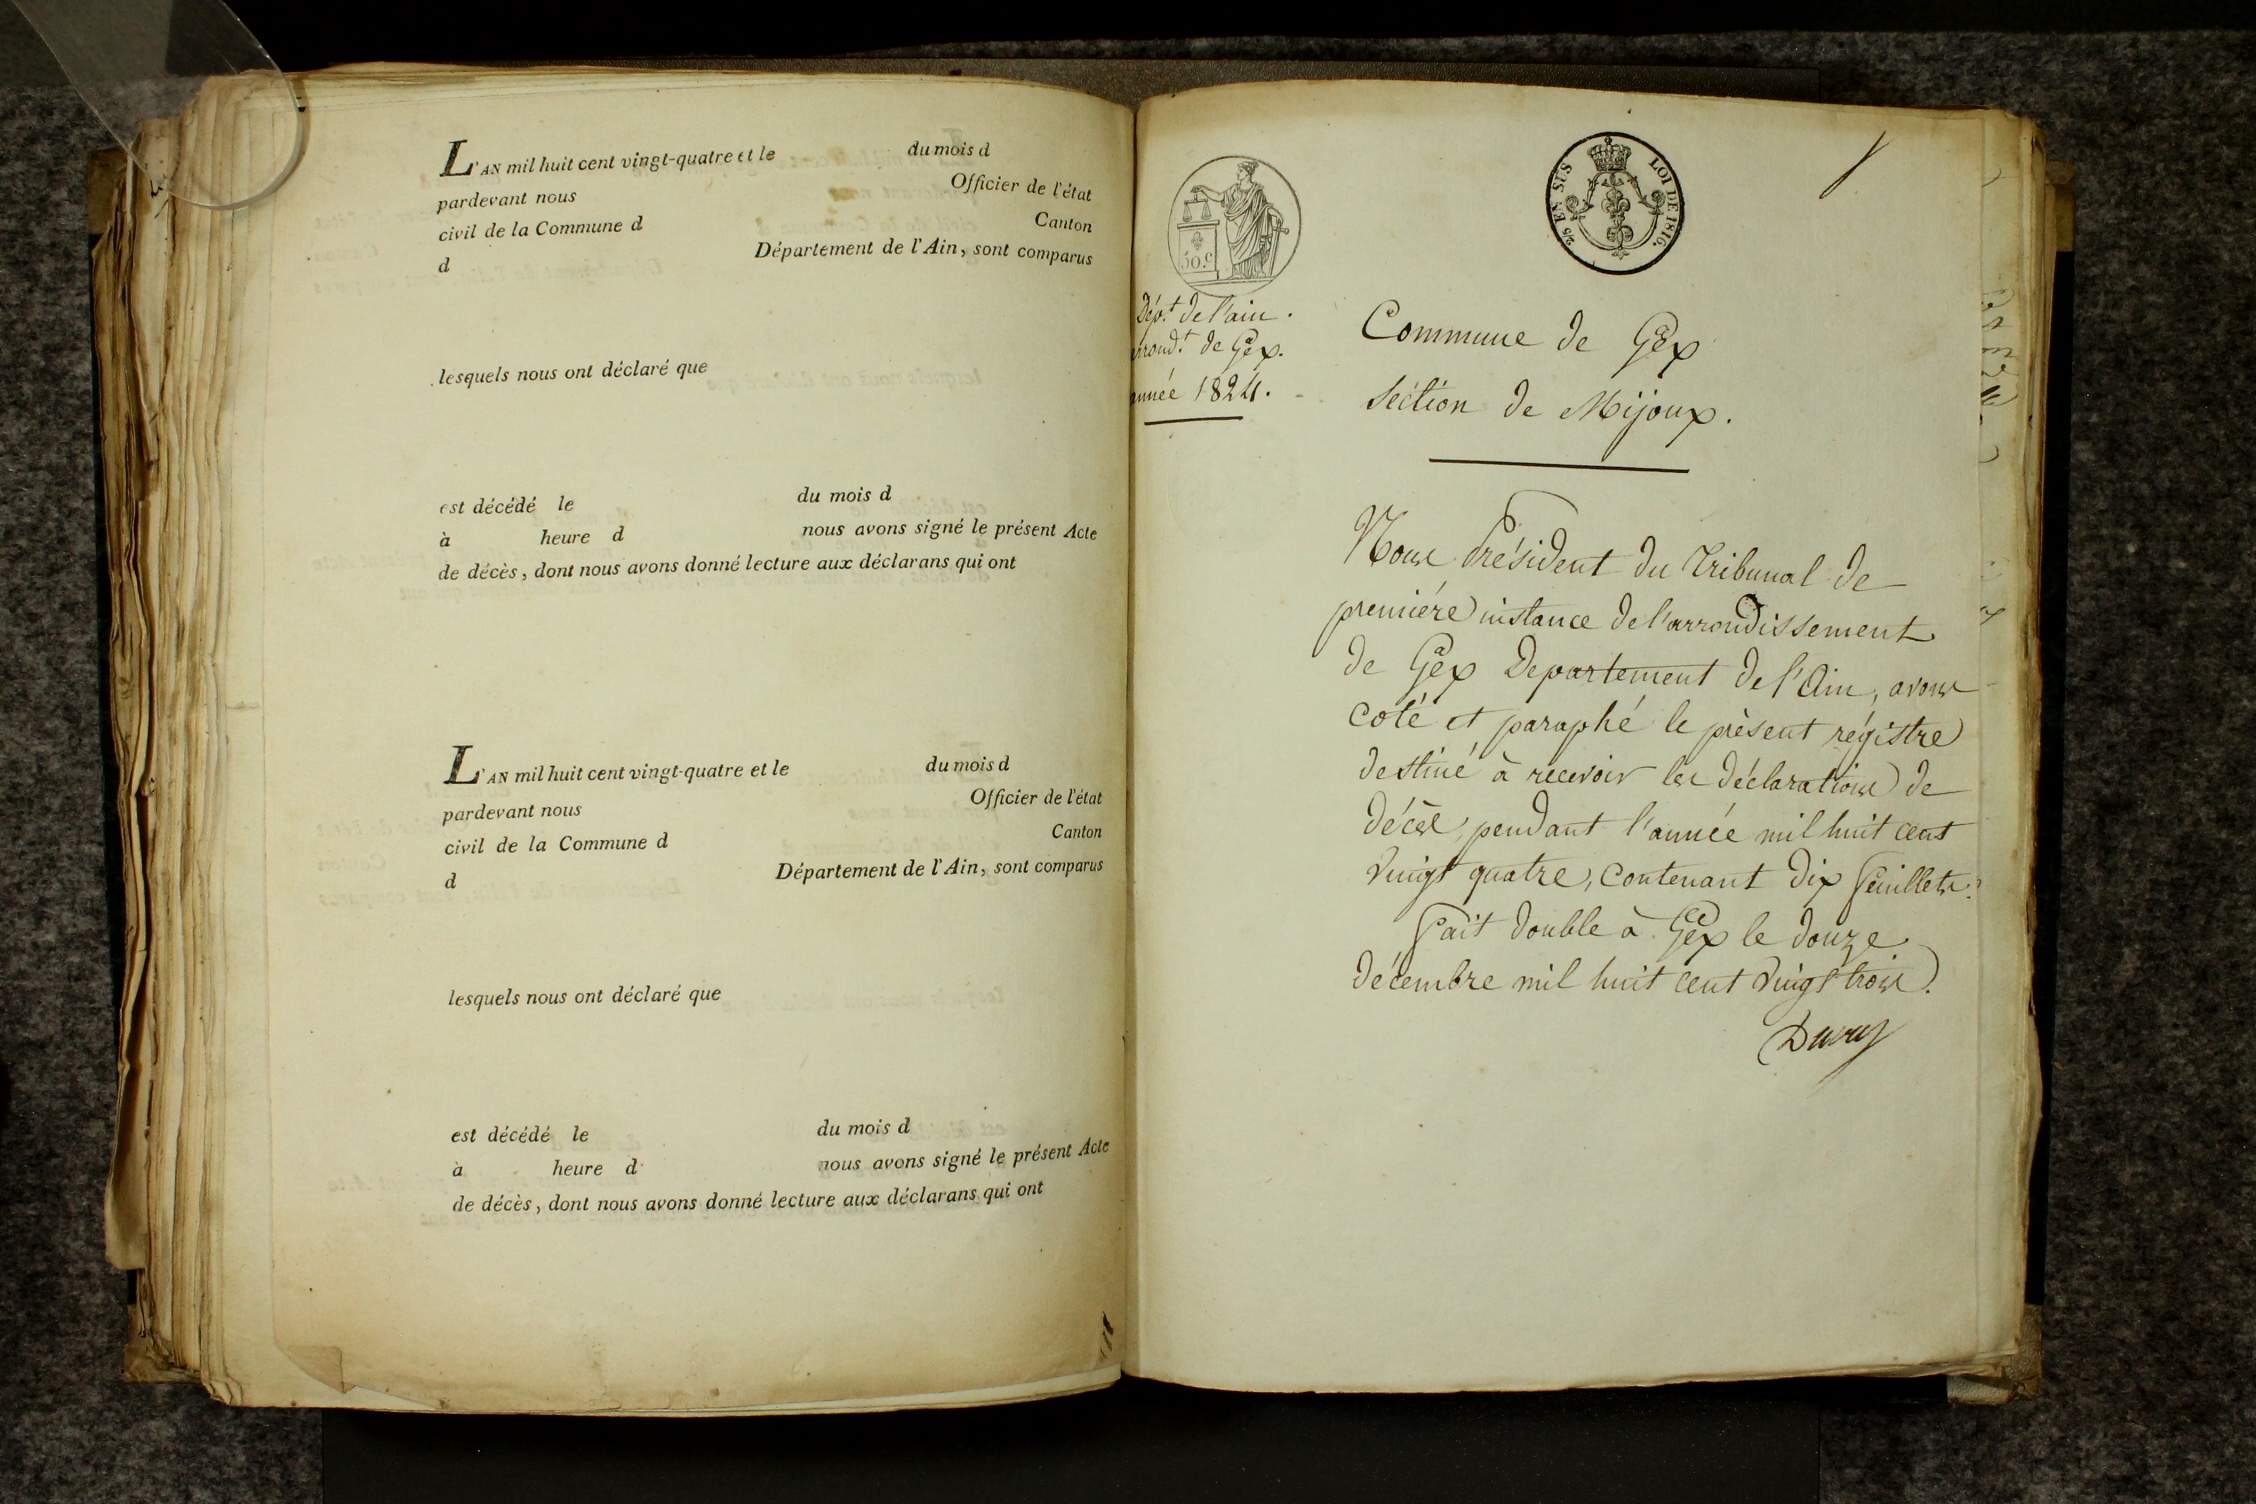 L'AN mil huit cent vingt-quatre et le du mois d
pardevant nous Officier de l'état
civil de la Commune d Canton
d Département de l'Ain, sont comparus
lesquels nous ont déclaré que
est décédé le du mois d
à heure d nous avons signé le présent Acte
de décès, dont nous avons donné lecture aux déclarans qui ont
L'AN mil huit cent vingt-quatre et le du mois d
pardevant nous Officier de l'état
civil de la Commune d Canton
d Département de l'Ain, sont comparus
lesquels nous ont déclaré que
est décédé le du mois d
à heure d nous avons signé le présent Acte
de décès, dont nous avons donné lecture aux déclarans qui ont
50.c
2/5 EN SUS LOI DE 1816.
Dép.t de l'ain.
arrond.t de Gex.
année 1824.
Commune de Gex
Séction de Mijoux.
Nous Président du Tribunal de
premiére instance de l'arrondissement
de Gex Departement de l'Ain, avons
coté et paraphé le présent régistre
destiné à recevoir les déclarations de
décès, pendant l'année mil huit cent
vingt quatre, contenant dix feuillets.
Fait double à Gex le douze
décembre mil huit cent vingt trois.